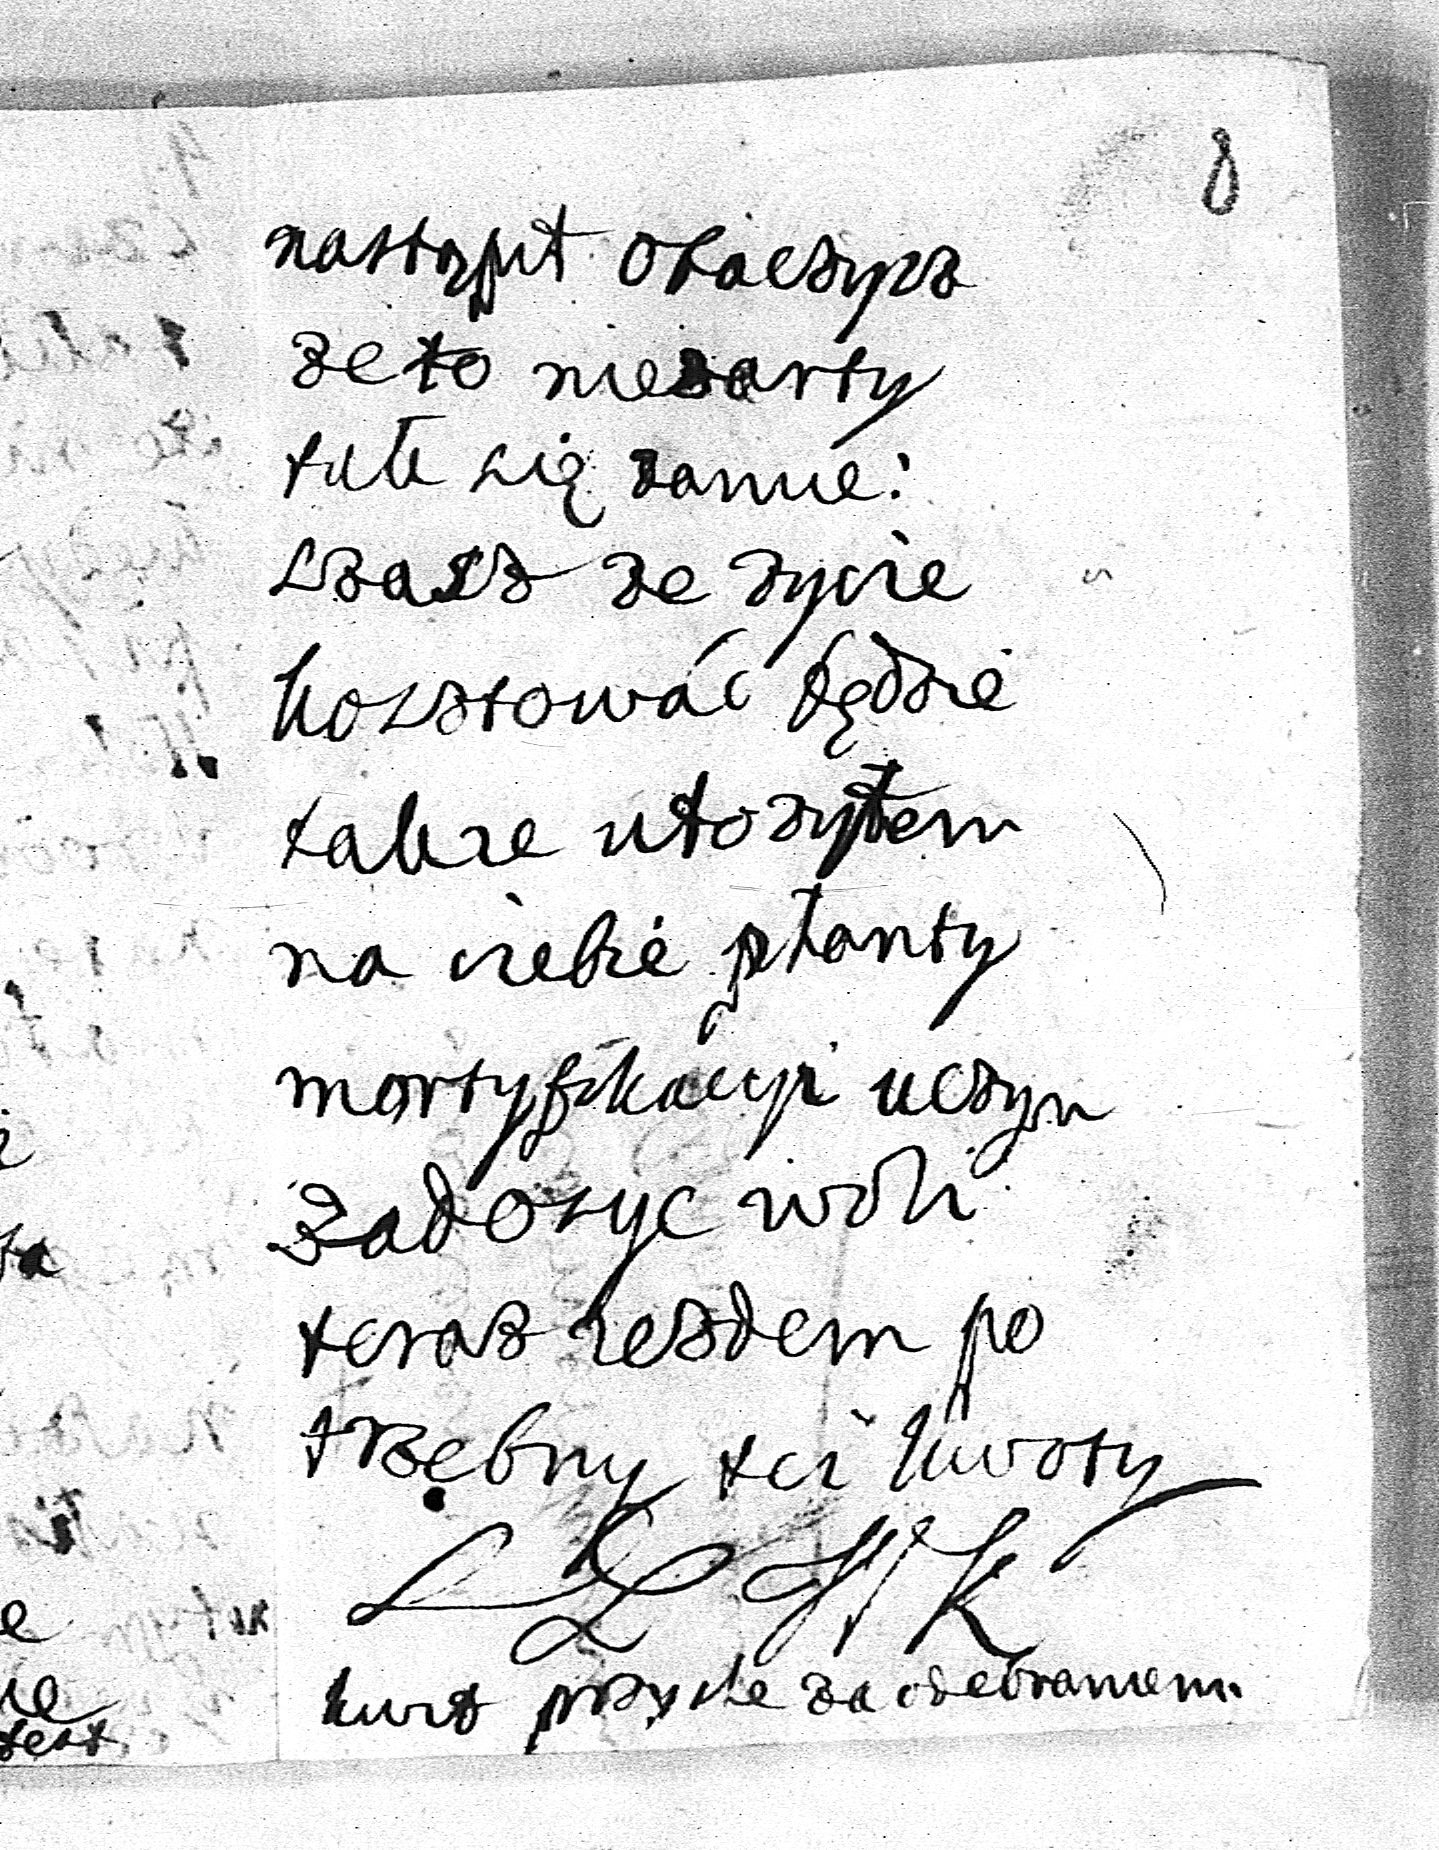 8
nastąpił obaczysz
ze to nie zarty
tak się zamie:
szasz ze zycie
kosztować będzie
takze utozyłem
na ciebie płanty
mortyfikacyi uczyn
zadosyc woli
teraz iezdem po
trzębny tei kwoty
LL HK
kwiz przyile za odebraniem.